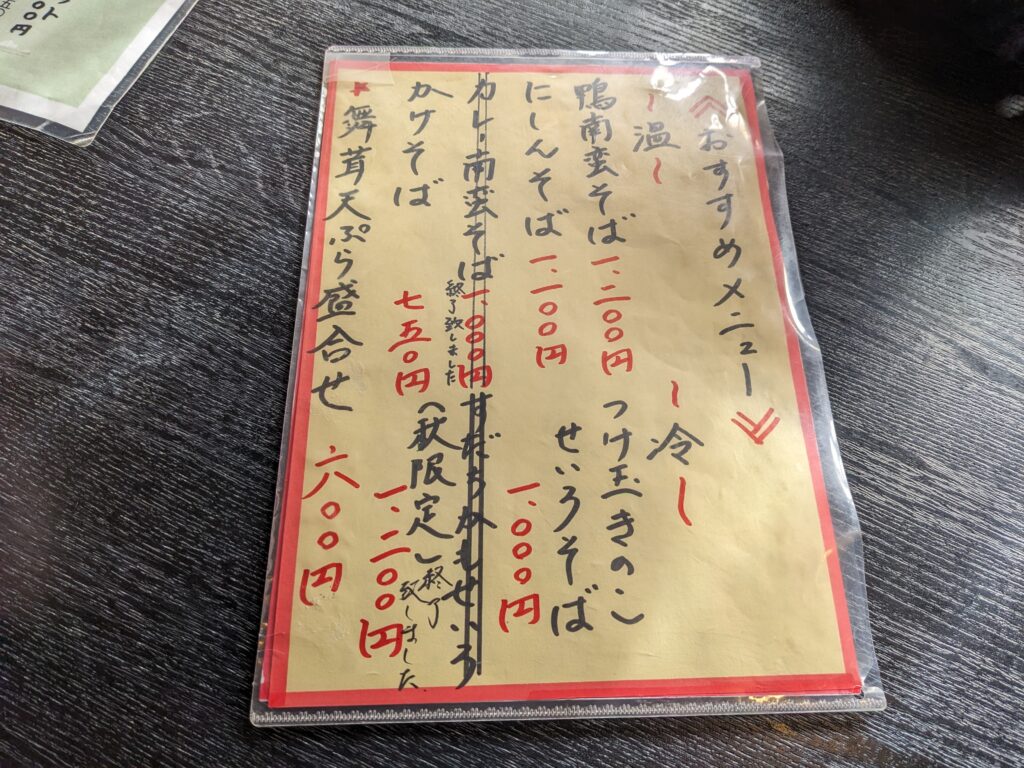 《おすすめメニュー》
〜温〜
鴨南蛮そば 一、二〇〇円
にしんそば 一、一〇〇円
カレー南蛮そば 一、〇〇〇円
終了致しました
かけそば 七五〇円
〜冷〜
つけ玉きのこ
せいろそば
一、〇〇〇円
すだちかもせいろ
(秋限定)
一、二〇〇円
終了
致しました
★舞茸天ぷら盛合せ 六〇〇円